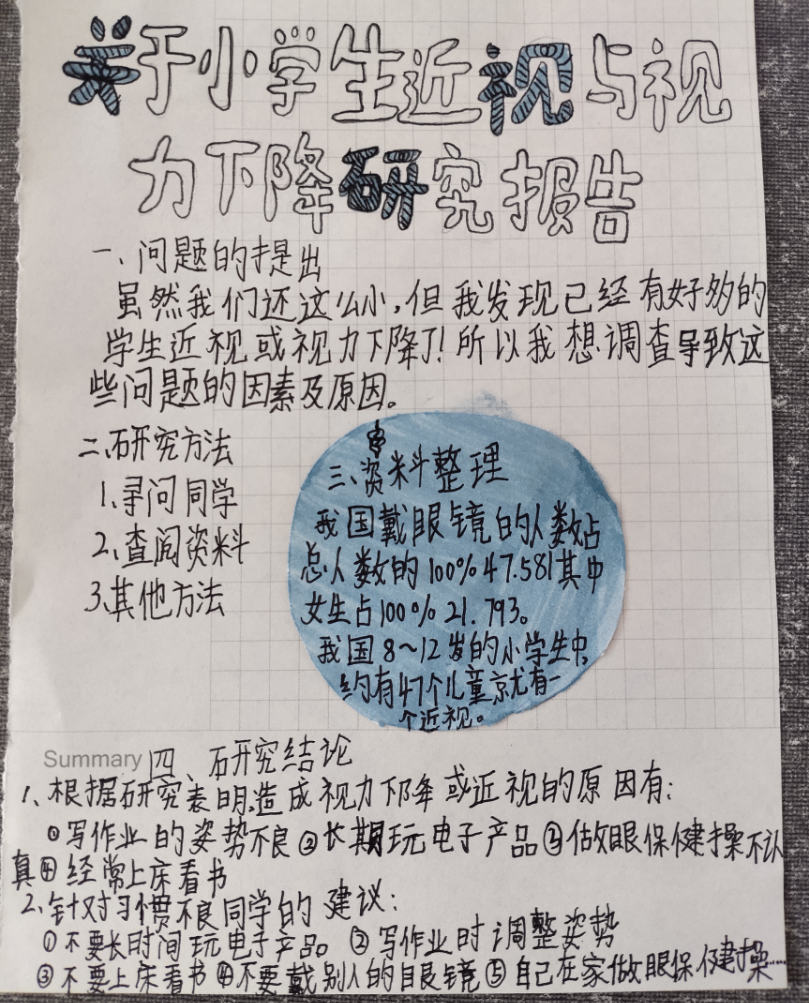 关于小学生近视与视
力下降研究报告
一、问题的提出
虽然我们还这么小,但我发现已经有好多的
学生近视或视力下降了!所以我想调查导致这
些问题的因素及原因。
二、研究方法
1.寻问同学
2.查阅资料
3.其他方法
三、资料整理
我国戴眼镜的人数占
总人数的100%47.581其中
女生占100%21.793。
我国8~12岁的小学生中,
约有47个儿童就有一
个近视。
Summary 四、研究结论
1、根据研究表明,造成视力下降或近视的原因有:
①写作业的姿势不良②长期玩电子产品③做眼保健操不认
真④经常上床看书
2、针对习惯不良同学的建议:
①不要长时间玩电子产品 ②写作业时调整姿势
③不要上床看书④不要戴别人的眼镜⑤自己在家做眼保健操……